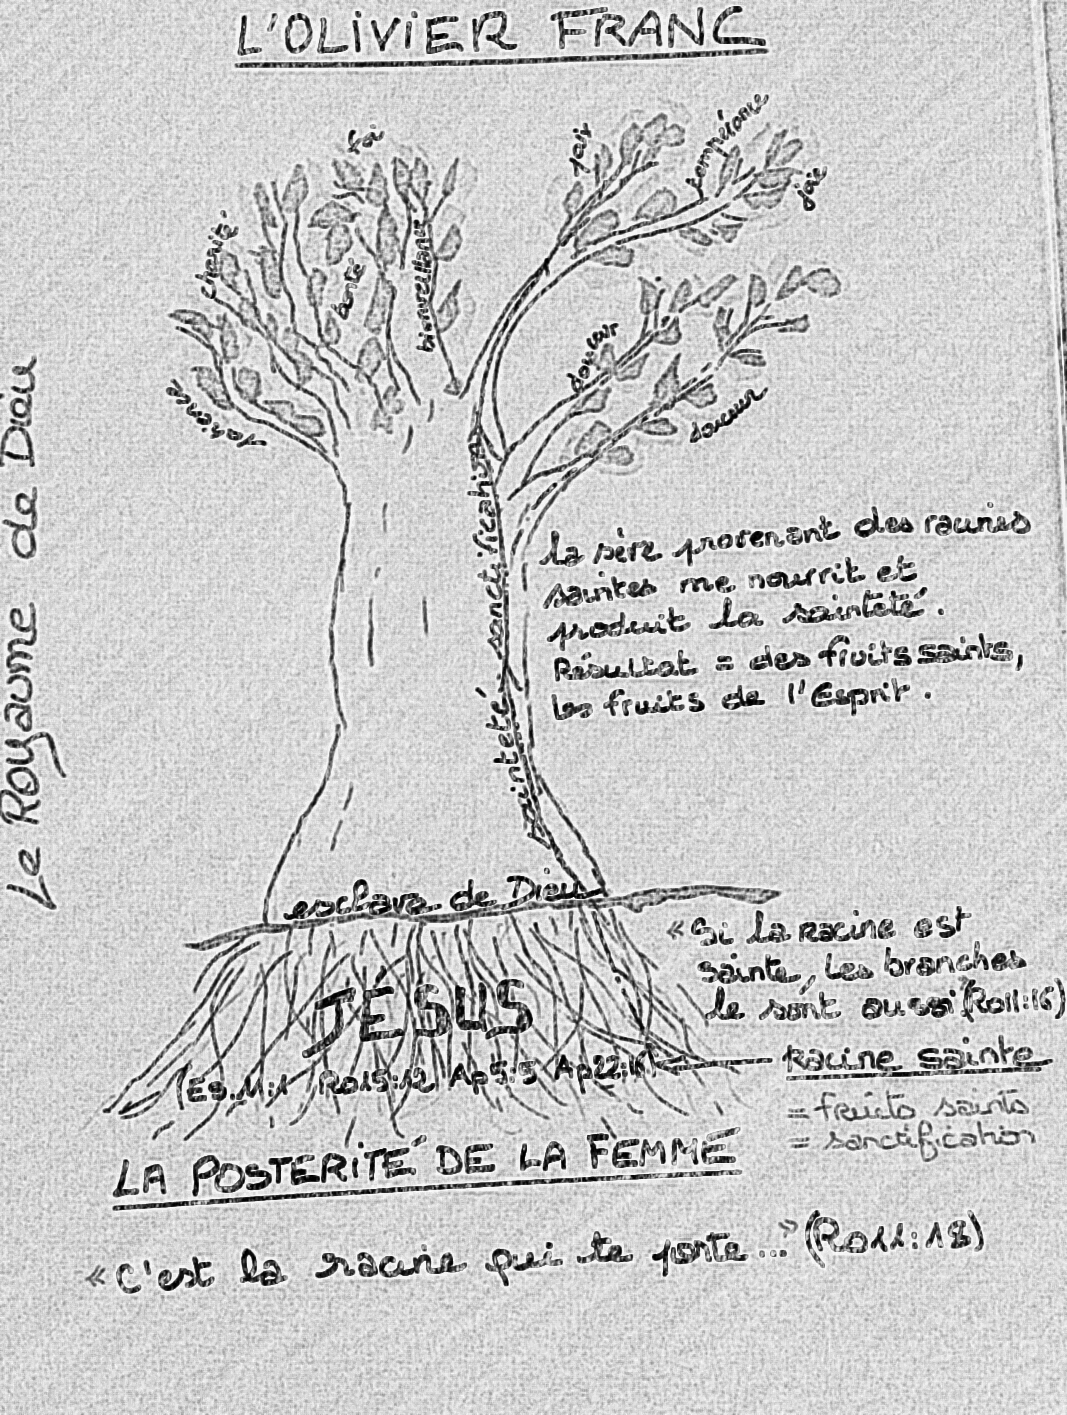 L'OLIVIER FRANC
foi
paix
tempérance
joie
charité
bonté
bienveillance
patience
douceur
douceur
Le Royaume de Dieu
sainteté sanctification
la sève provenant des racines
saintes me nourrit et
produit la sainteté.
Résultat = des fruits saints,
les fruits de l'Esprit.
esclave de Dieu
« Si la racine est
sainte, les branches
le sont aussi" (Ro11:16)
JÉSUS
(Es.11:1 Ro15:12 Ap5:5 Ap22:16)
Racine sainte
= fruits saints
= sanctification
LA POSTERITÉ DE LA FEMME
« C'est la racine qui te porte..." (Ro11:18)